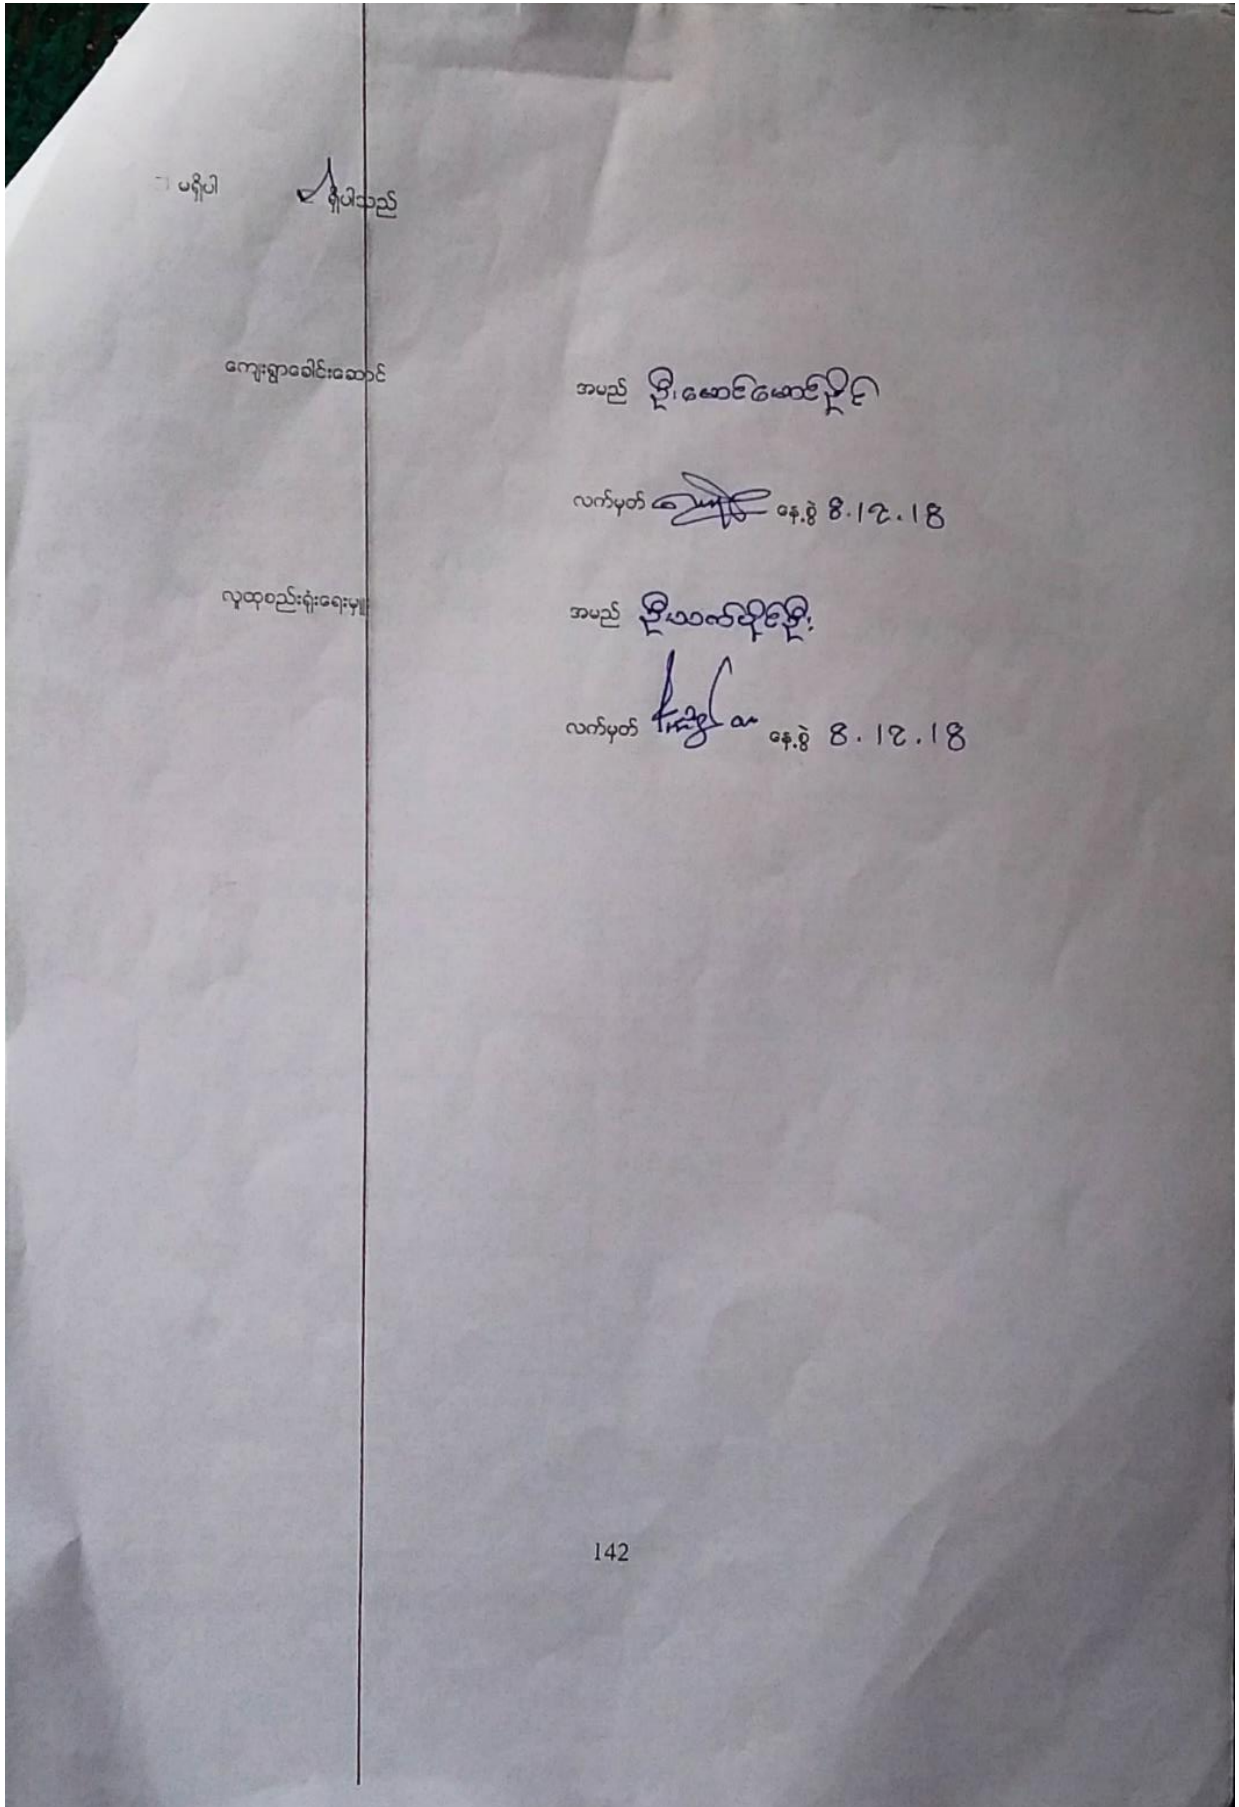 မရှိပါ ရှိပါသည်
ကျေးရွာခေါင်းဆောင် အမည် ဦးမောင်မောင်ဦး
လက်မှတ် နေ့စွဲ 8.12.18
လူထုစည်းရုံးရေးမှူး အမည် ဦးသက်ပိုင်ဦး
လက်မှတ် နေ့စွဲ 8.12.18
142